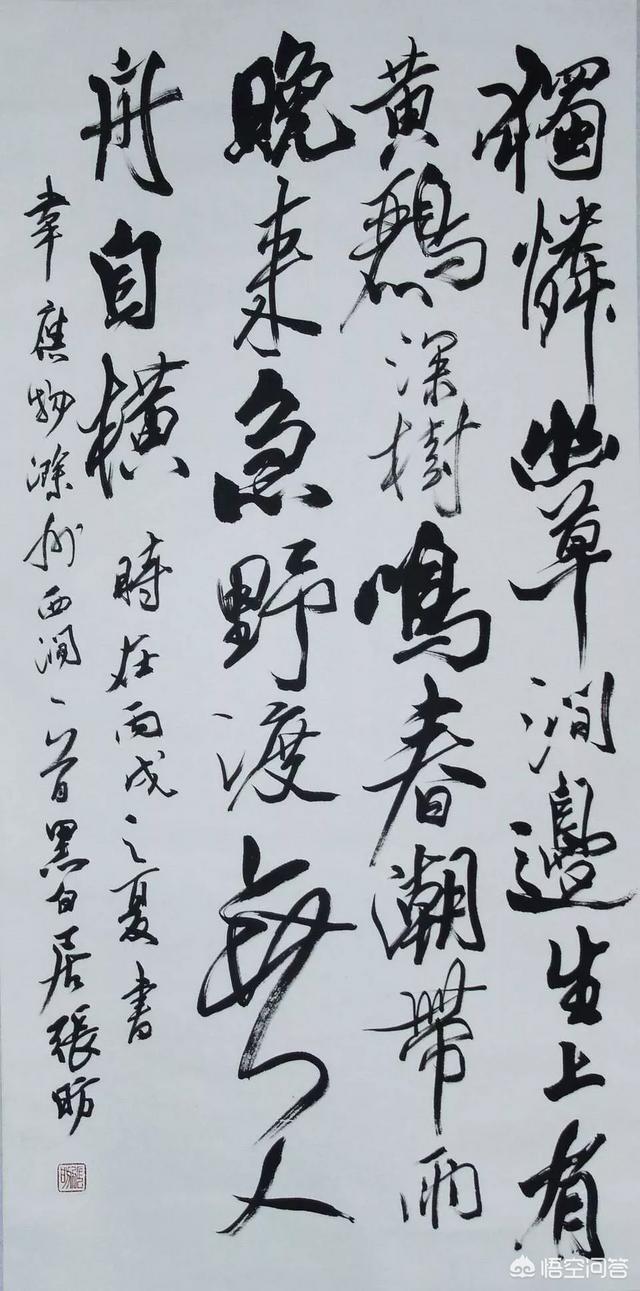 獨憐幽草澗邊生上有
黃鸝深樹鳴春潮帶雨
晚來急野渡無人
舟自橫
時在丙戌之夏書
韋應物滁州西澗一首黑白居張昉
張昉
悟空问答